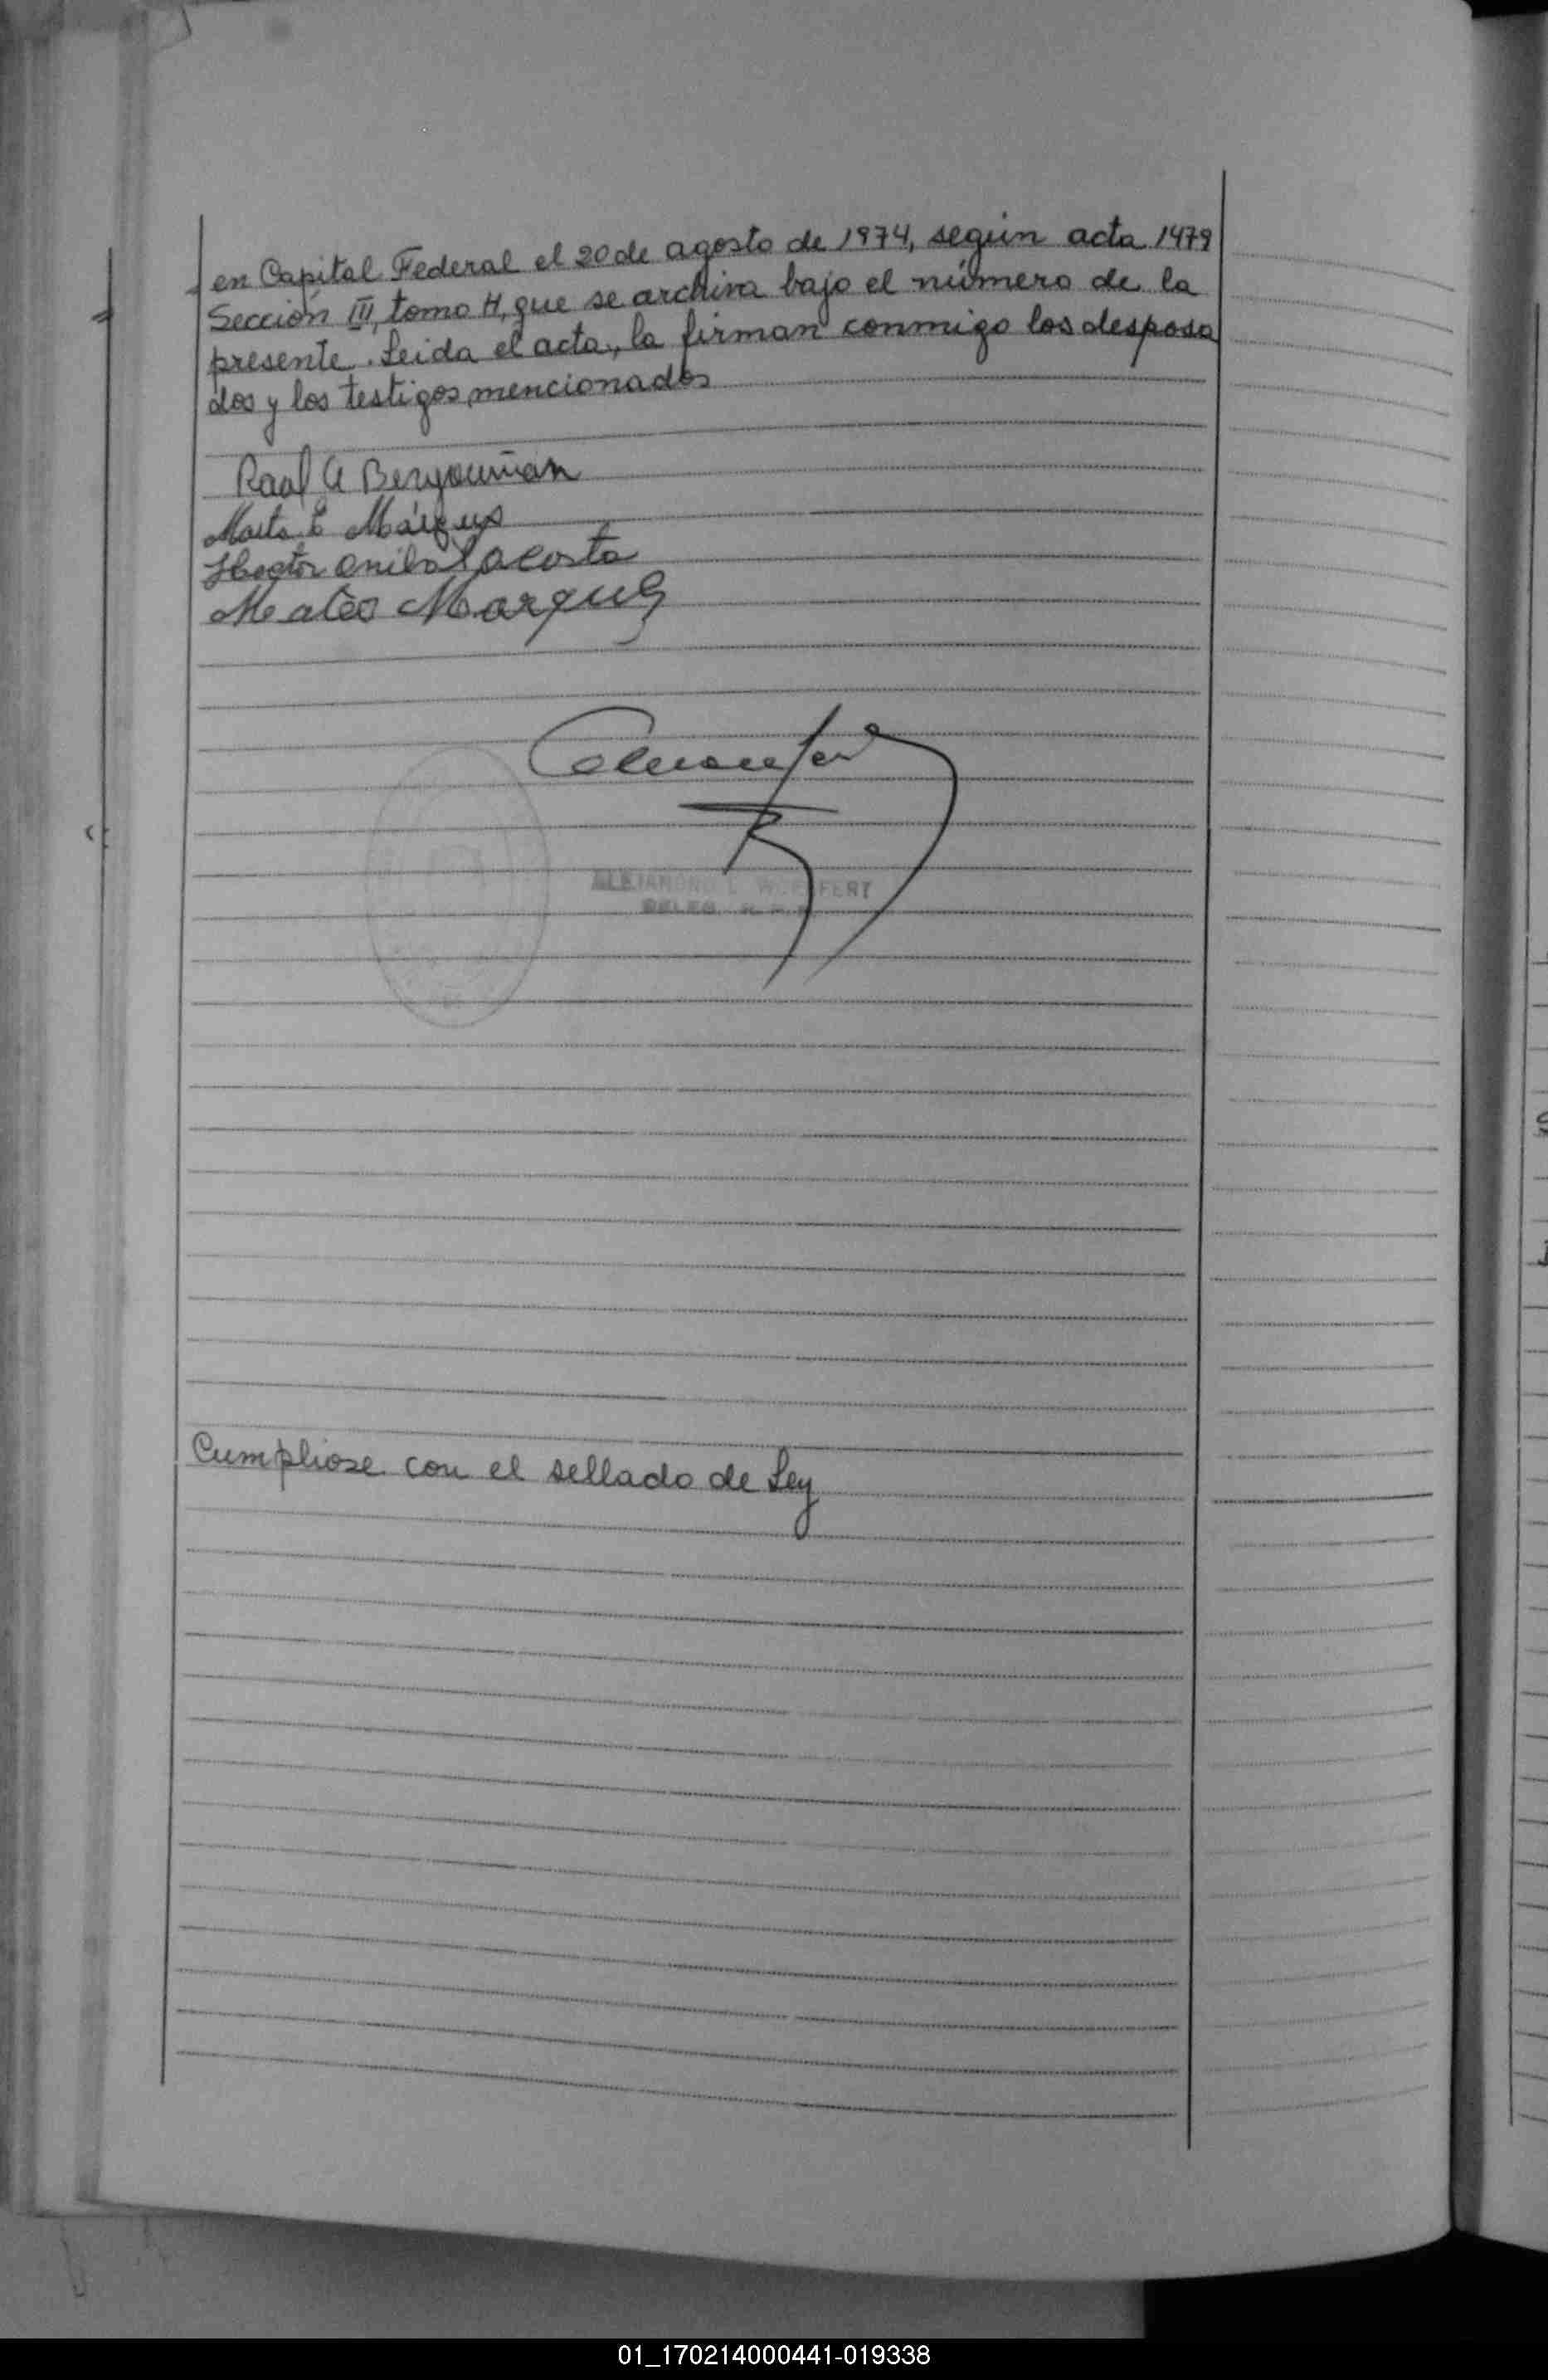 en Capital Federal el 20 de agosto de 1974, según acta 1479
Sección III, tomo H, que se archiva bajo el número de la
presente. Leida el acta, la firman conmigo los desposa
dos y los testigos mencionados
Raal A
Marta E Márquez
Hector Anibal Lacosta
Mateo Marquez
ALEJANDRO L
DELEG.
Cumpliose con el sellado de Ley
01_170214000441-019338